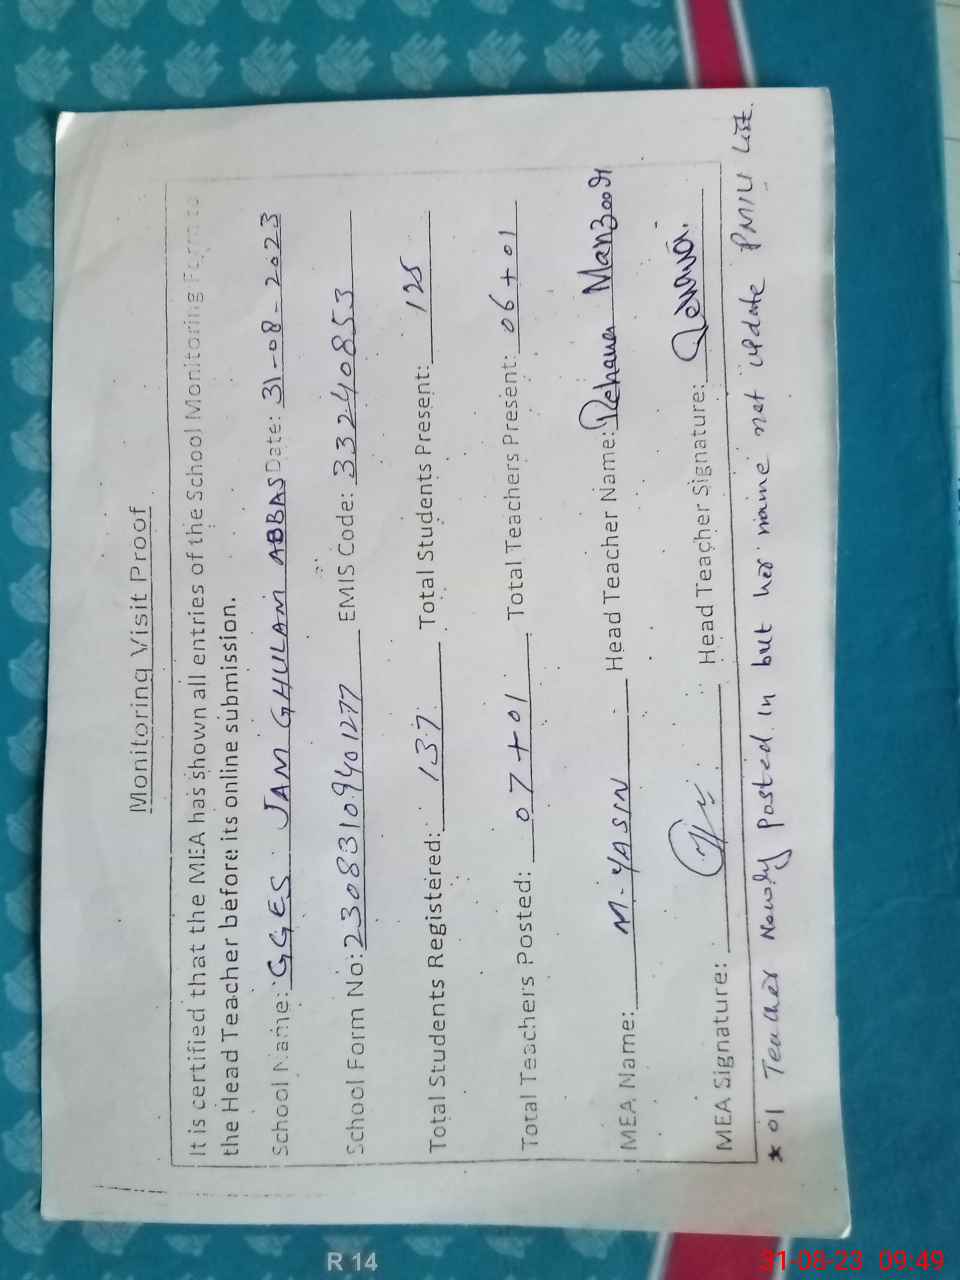 Monitoring Visit Proof
It is certified that the MEA has shown all entries of the School Monitoring Form to
the Head Teacher before its online submission.
School Name: GGES JAM GHULAM ABBAS Date: 31-08-2023
School Form No: 23083109401277 EMIS Code: 33240853
Total Students Registered: 137 Total Students Present: 125
Total Teachers Posted: 07+01 Total Teachers Present: 06+01
MEA Name: M. YASIN Head Teacher Name: Rehana Manzoor
MEA Signature: Head Teacher Signature:
* 01 Teacher Newly Posted in but her name not update PMIU List.
R 14
31-08-23 09:49